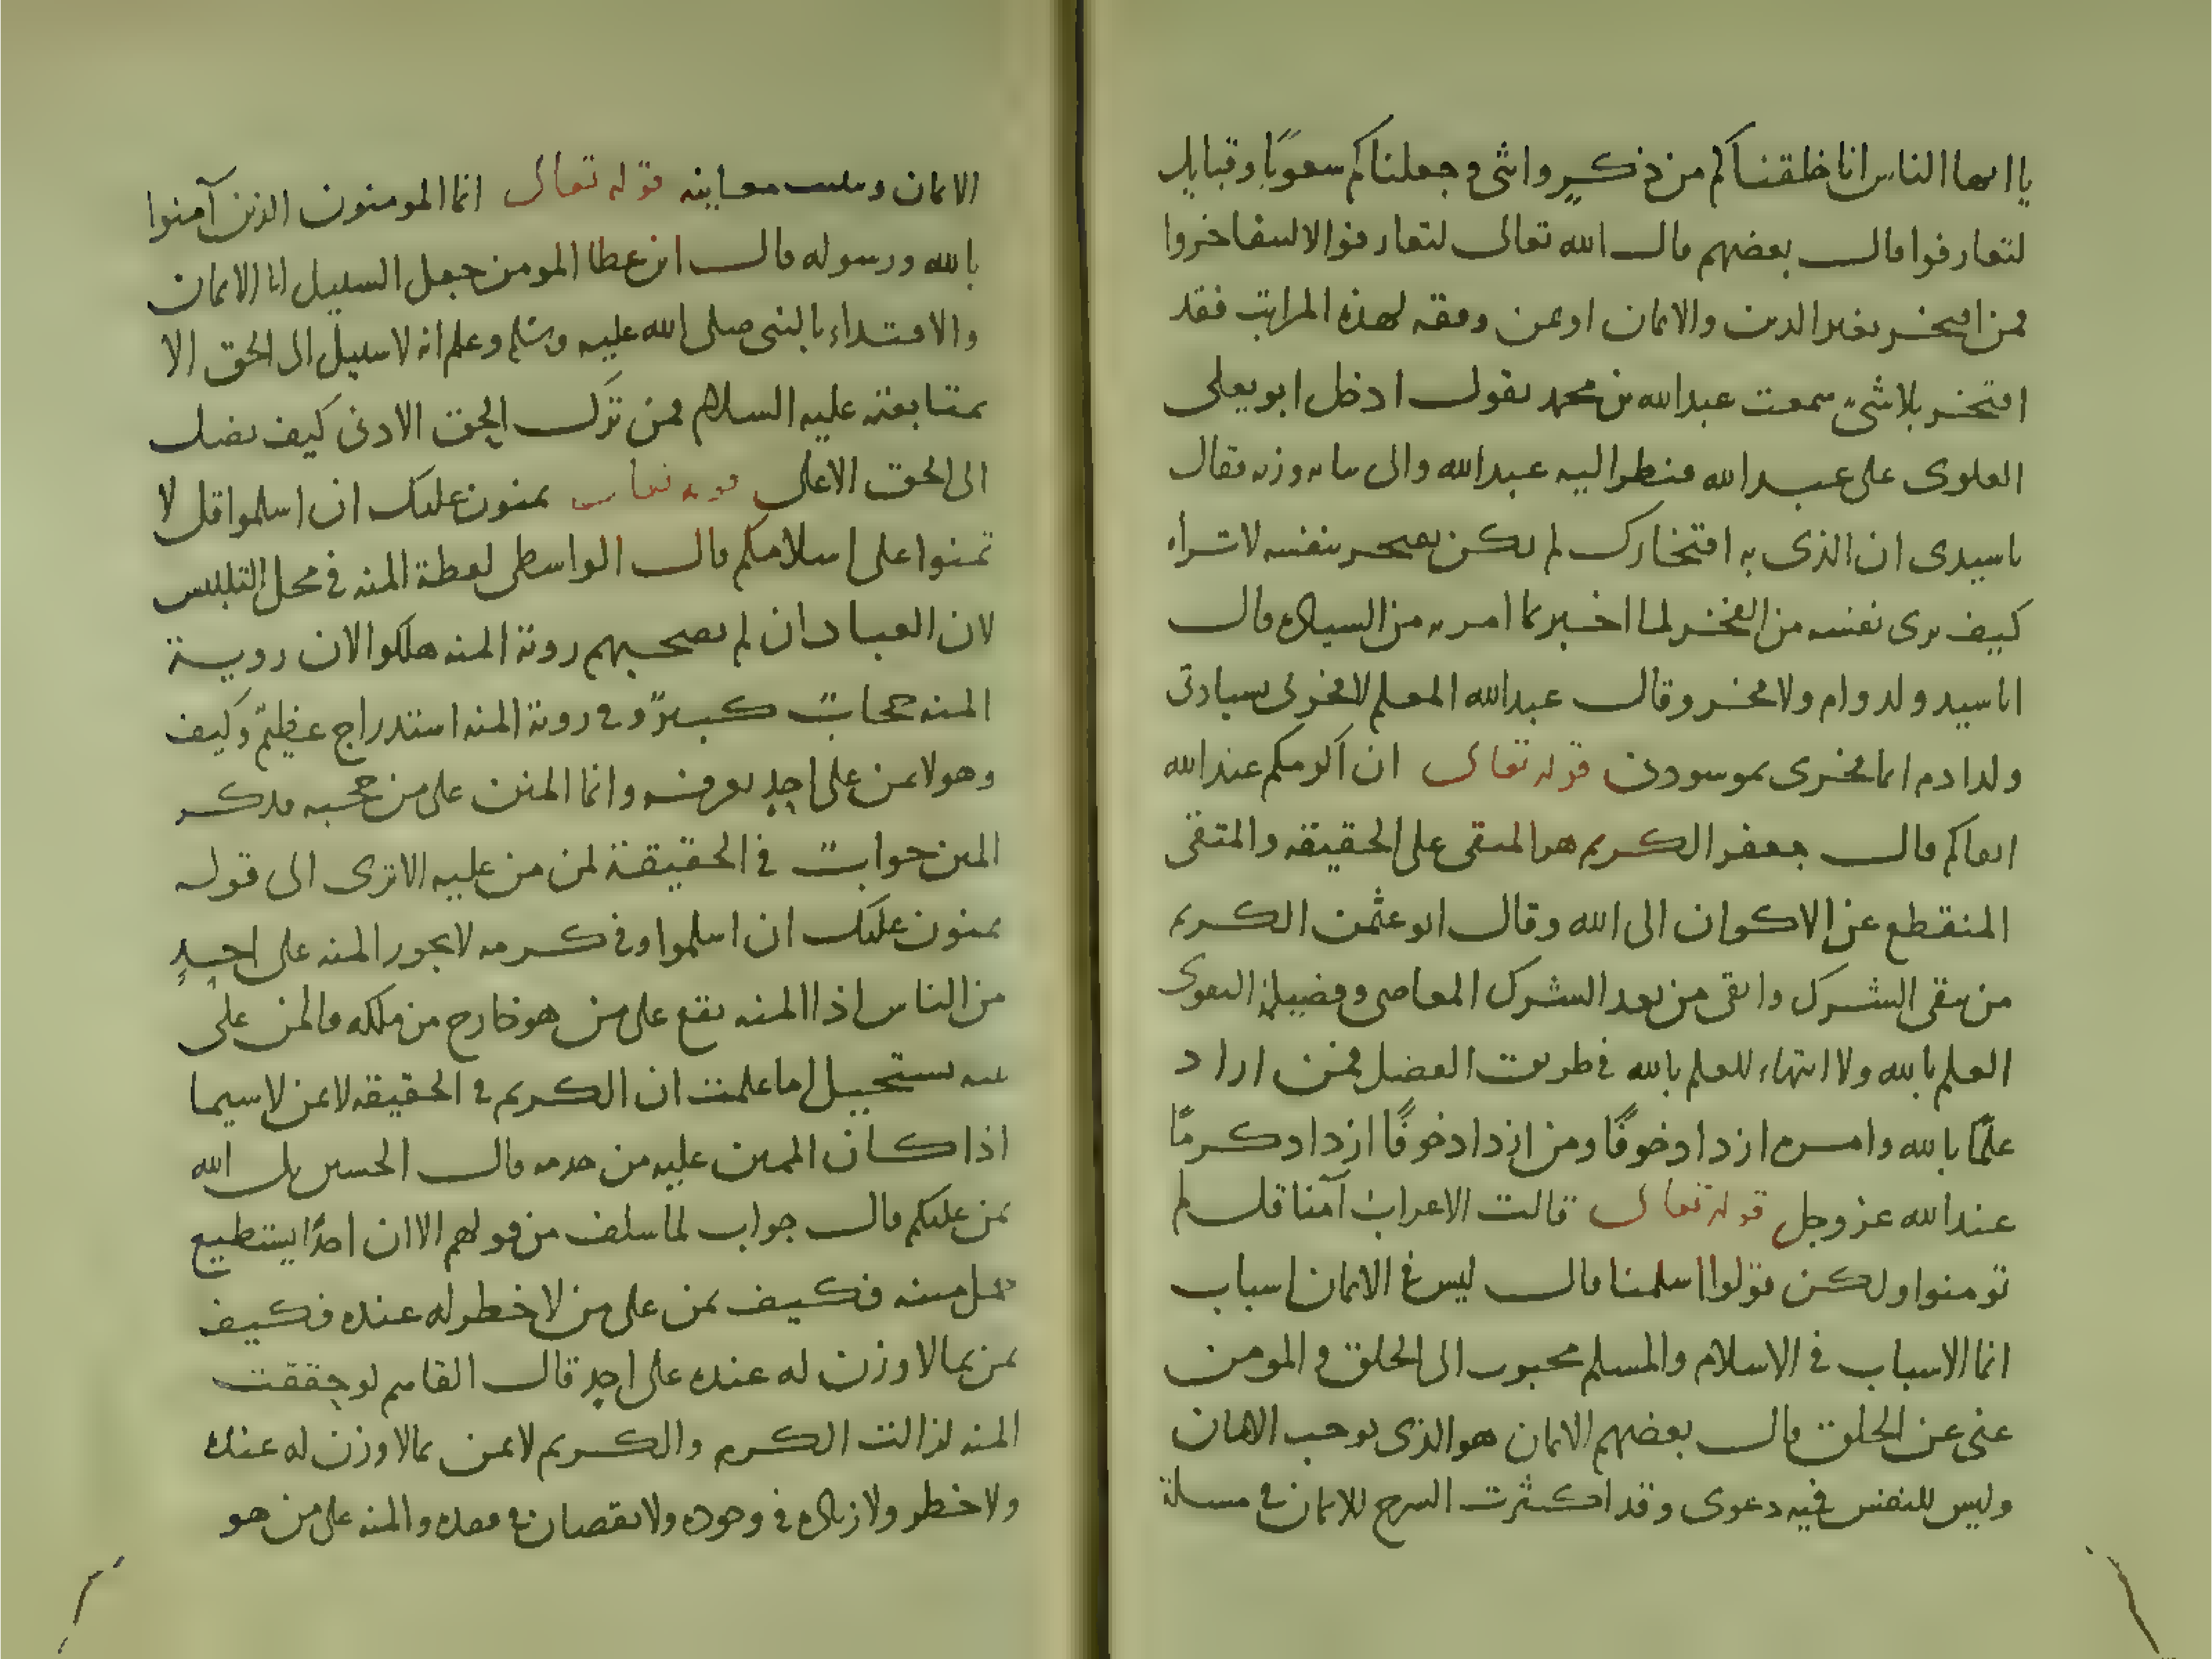 يا ايها الناس انا خلقناكم من ذكر وانثى وجعلناكم شعوبا وقبايل
لتعارفوا قال بعضهم قال الله تعالى لتعارفوا لا لتفاخروا
فمن افتخر بغير الدين والايمان او بمن وفقه لهذه المراتب فقد
افتخر بلا شيء سمعت عبد الله بن محمد يقول ادخل ابو يعلى
العلوى على عبد الله فنظر اليه عبد الله والى فقال
يا سيدى ان الذى به افتخارك لم يكن يفتخر بنفسه لا تراه
كيف برى نفسه من الفخر لما اخبر بما امر به من السيادة قال
انا سيد ولد ادم ولا فخر وقال عبد الله المعلم لا فخر لى بسيادتى
ولد ادم انما فخرى قوله تعالى ان اكرمكم عند الله
اتقاكم قال جعفر الكريم هو المتقى على الحقيقه والمتقى
المنقطع عن الاكوان الى الله وقال ابو عثمن الكريم
من يتقى الشرك واتقى من بعد الشرك المعاصى وفضيلة التقوى
العلم بالله ولا انتهاء للعلم بالله فى طريق الفضل فمن اراد
علما بالله وامره ازداد خوفا ومن ازداد خوفا ازداد كرما
عند الله عز وجل قوله تعالى قالت الاعراب آمنا قل لم
تومنوا ولكن قولوا اسلمنا قال ليس فى الايمان اسباب
انما الاسباب فى الاسلام والمسلم محبوب الى الخلق و المومن
غنى عن الخلق قال بعضهم الايمان هو الذى يوجب الامان
وليس للنفس فيه دعوى وقد اكثرت الشرح للايمان فى مسلة
الايمان قوله تعالى انما المومنون الذين آمنوا
بالله ورسوله قال ابن عطا المومن جعل السبيل الى الايمان
والاقتداء بالنبى صلى الله عليه وسلم وعلم انه لا سبيل الى الحق الا
بمتابعته عليه السلام فمن ترك الحق الادنى كيف يصل
الى الحق الاعلى قوله تعالى يمنون عليك ان اسلموا قل لا
تمنوا على اسلامكم قال الواسطى لفظة المنه فى محل التلبيس
لان العباد ان لم يصحبهم روية المنه هلكوا لان روية
المنه حجاب كبير وفى روية المنه استدراج عظيم وكيف
وهو لا يمن على احد يعرفه وانما المنن على من حجبه فذكر
المنن جواب فى الحقيقة لمن من عليه الا ترى الى قوله
يمنون عليك ان اسلموا وفى كرمه لا يجوز المنه على احد
من الناس اذا المنه تقع على من هو خارج من ملكه فالمن على
يستحيل اما علمت ان الكريم فى الحقيقه لا يمن لا سيما
اذا كان الممنن عليه من خدمه قال الحسين بل الله
يمن عليكم قال جواب لما سلف من قولهم الا ان احدا يستطيع
حمل مننه فكيف يمن على من لا خطر له عنده فكيف
يمن بما لا وزن له عنده على احد قال القاسم لو حققت
المنه لزالت الكرم والكريم لا يمن بما لا وزن له عنده
ولا خطر ولا زياده فى وجوده ولا نقصان فى فقده والمنه على من هو